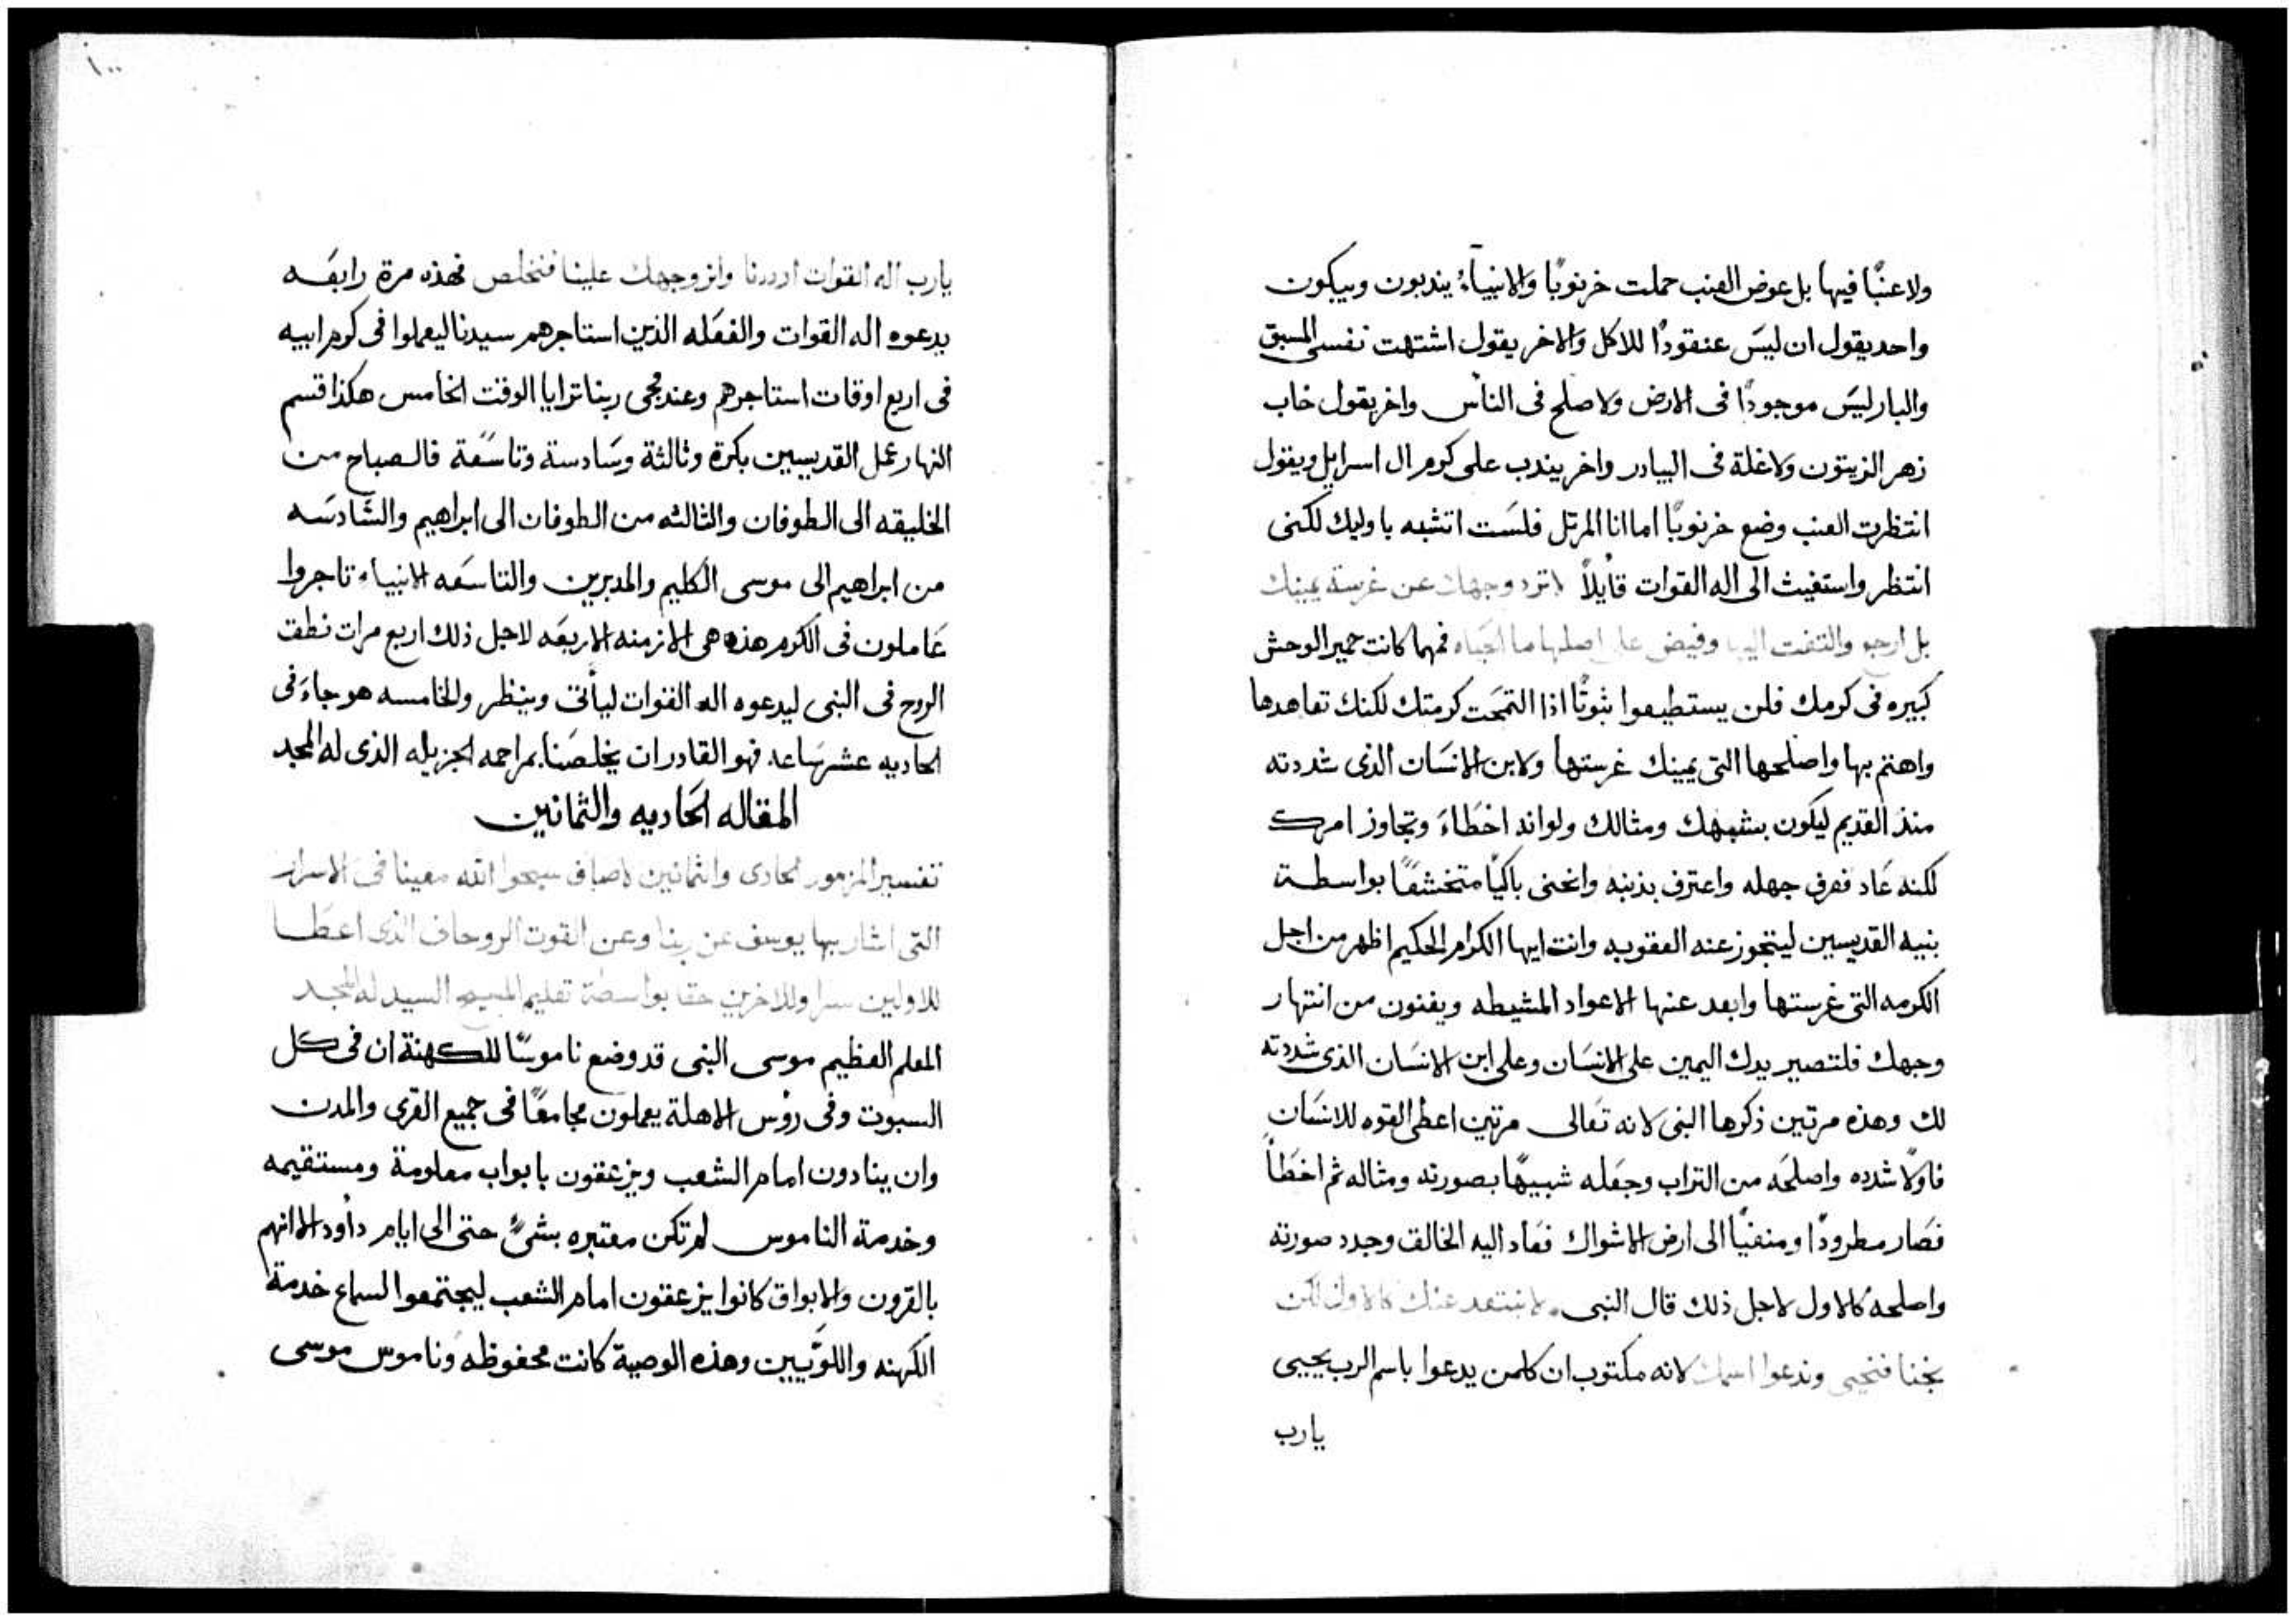 ولا عنبًا فيها بل عوض العنب حملت خرنوبًا والانبيآء يندبون ويبكون
واحد يقول ان ليسَ عنقودًا للاكل والاخر يقول اشتهت نفسى المسبق
والبار ليسَ موجودًا فى الارض ولا صلح فى الناس واخر يقول خاب
زهر الزيتون ولا غلة فى البيادر واخر يندب على كرم ال اسرايل ويقول
انتظرت العنب وضع خرنوبًا اما انا المرتل فلسَت اتشبه باوليك لكنى
انتظر واستغيث الى اله القوات قايلاً لا ترد وجهك عن غرسة يمينك
بل ارجع والتفت اليها وفيض على اصلها ما الحياه فمهما كانت حمير الوحش
كبيره فى كرمك فلن يستطيعوا ثبوتًا اذا التمحَت كرمتك لكنك تعاهدها
واهتم بها واصلحها التى يمينك غرستها ولابن الانسَان الذى شددته
منذ القديم ليكون بشبهك ومثالك ولو انه اخطَاءَ وتجاوز امرك
لكنه عَاد فعرف جهله واعترف بذنبه وانحنى باكيًا متخشعًا بواسطة
بنيه القديسين ليتجوز عنه العقوبه وانت ايها الكرام الحكيم اظهر من اجل
الكرمه التى غرستها وابعد عنها الاعواد المشيطه ويفنون من انتهار
وجهك فلتصير يدك اليمين على الانسَان وعلى ابن الانسَان الذى شددته
لك وهذه مرتين ذكرها النبى لانه تعَالى مرتين اعطى القوه للانسَان
فاولاً شدده واصلحَه من التراب وجعَله شبيهًا بصورته ومثاله ثم اخطَأ
فصَار مطرودًا ومنفيًا الى ارض الاشواك فعَاد اليه الخالق وجدد صورته
واصلحه كالاول لاجل ذلك قال النبى لا نبتعد عنك كالاول لكن
نجنا فنحيى وندعوا اسمك لانه مكتوب ان كلمن يدعوا باسم الرب يحيى
يارب
١٠٠
يارب اله القوات ارددنا وانر وجهك علينا فنخلص فهذه مرة رابعَه
يدعوه اله القوات والفعَله الذين استاجرهم سيدنا ليعملوا فى كرم ابيه
فى اربع اوقات استاجرهم وعند مجى ربنا ترايا الوقت الخامس هكذا قسم
النهار عمل القديسين بكرة وثالثة وسَادسة وتاسَعة فالصباح من
الخليقه الى الطوفان والثالثه من الطوفان الى ابراهيم والسَّادسَه
من ابراهيم الى موسى الكليم والمدبرين والتاسَعه الانبياء تاجروا
عَاملون فى الكرم هذه هى الازمنه الاربعَه لاجل ذلك اربع مرات نطق
الروح فى النبى ليدعوه اله القوات ليأتى وينظر والخامسه هو جاءَ فى
الحاديه عشر سَاعه فهو القادر ان يخلصَنا بمراحمه الجزيله الذى له المجد
المقاله الحَاديه والثمانين
تفسير المزمور الحادى والثمانين لاصاف سبحوا الله معينا فى الاسرار
التى اشار بها يوسف عن ربنا وعن القوت الروحانى الذى اعطَا
للاولين سرا وللاخرين حقا بواسطة تعليم المسيح السيد له المجد
المعلم العظيم موسى النبى قد وضع ناموسًا للكهنة ان فى كل
السبوت وفى رؤس الاهلة يعملون مجامعًا فى جميع القرى والمدن
وان ينادون امام الشعب ويزعقون بابواب معلومة ومستقيمه
وخدمة الناموس لم تكن معتبره بشىءً حتى الى ايام داود الا انهم
بالقرون والابواق كانوا يزعقون امام الشعب ليجتمعوا لسماع خدمة
الكهنه واللوَّيين وهذه الوصية كانت محفوظه وناموس موسى